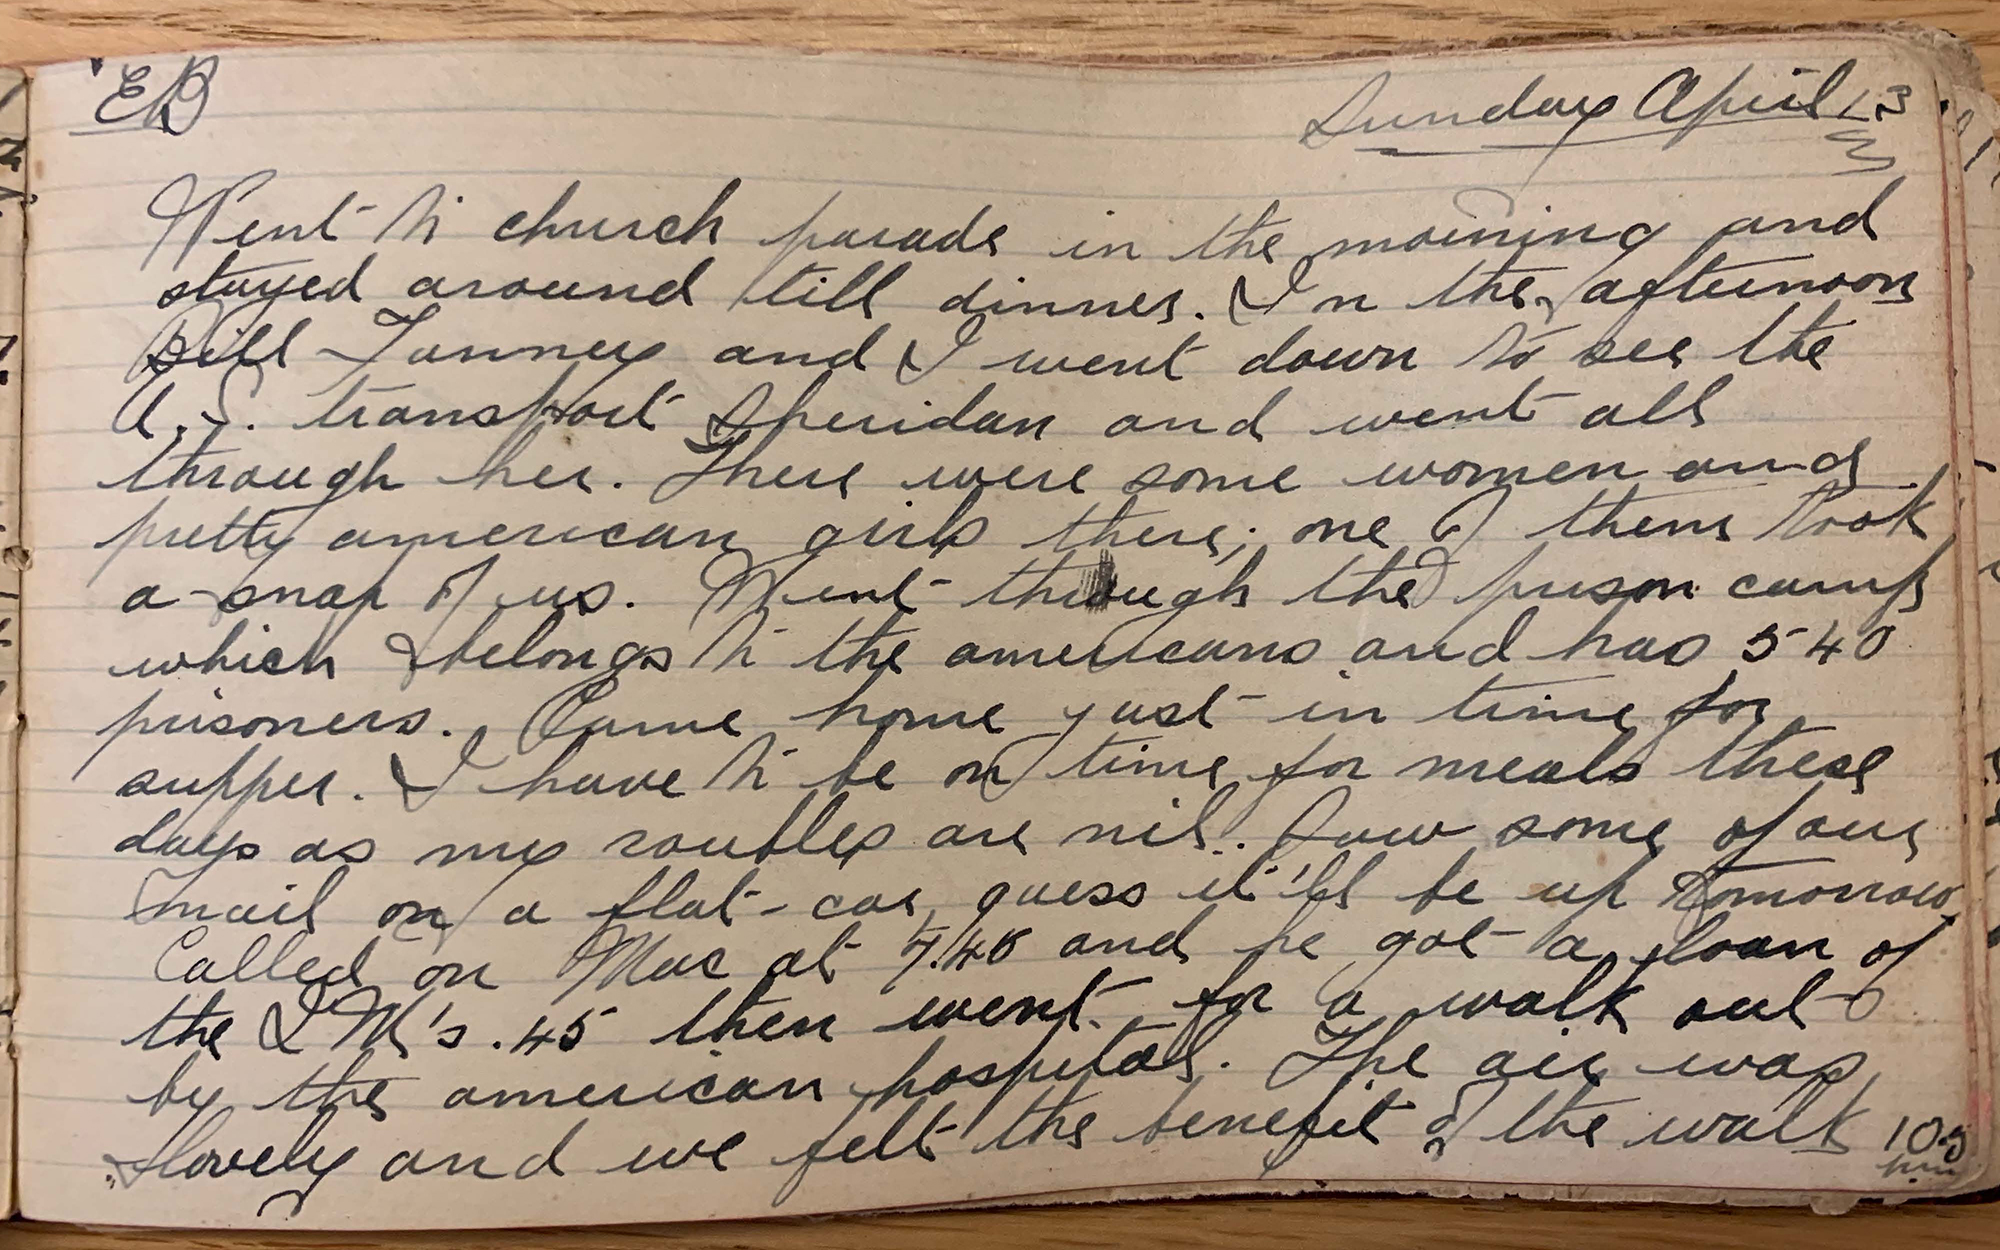 EB
Sunday April 13
Went to church parade in the morning and
stayed around till dinner. In the afternoon
Bill Tanney and I went down to see the
U.S. transport Sheridan and went all
through her. There were some women and
pretty american girls there; one of them took
a snap of us. Went through the prison camp
which belongs to the americans and has 540
prisoners. Came home just in time for
supper. I have to be on time for meals these
days as my roubles are nil. Saw some of our
mail on a flat-car, guess it'll be up tomorrow
Called on Mac at 7.45 and he got a loan of
the .45 then went for a walk out
by the american hospital. The air was
lovely and we felt the benefit of the walk
10.5
pm